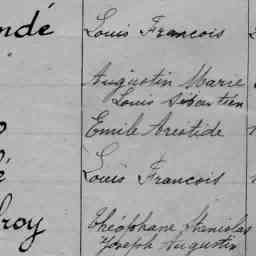 ndé Louis Francois
Augustin Marie
Louis Sébastien
Emile Aristide
é Louis Francois
roy Théophane Stanislas
Joseph Augustin